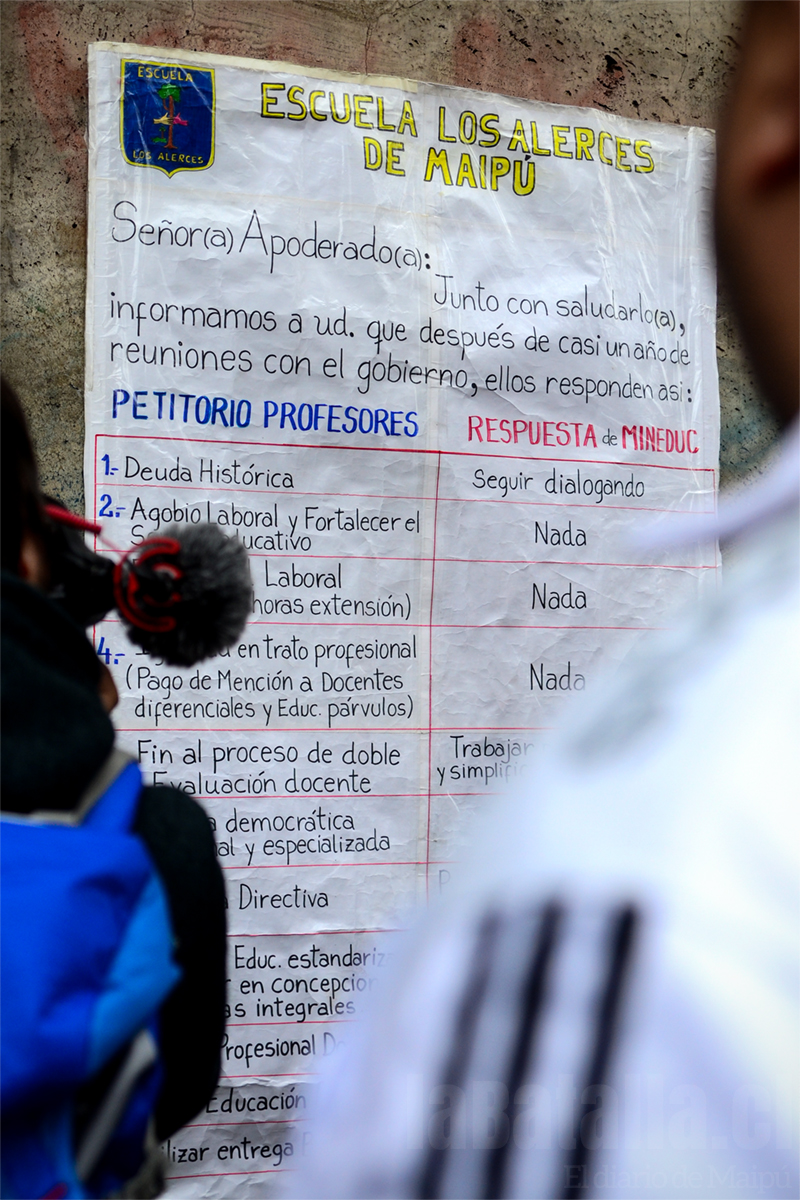 ESCUELA
LOS ALERCES
ESCUELA LOS ALERCES
DE MAIPÚ
Señor(a) Apoderado(a):
Junto con saludarlo(a),
informamos a ud. que después de casi un año de
reuniones con el gobierno, ellos responden asi:
PETITORIO PROFESORES RESPUESTA de MINEDUC
1.- Deuda Histórica Seguir dialogando
2.- Agobio Laboral y Fortalecer el
Nada
Laboral
horas extensión) Nada
4.- en trato profesional
(Pago de Mención a Docentes Nada
diferenciales y Educ. párvulos)
Fin al proceso de doble Trabajar
Evaluación docente
democrática
y especializada
Directiva
Educ.
en
integrales
Profesional
Educación
entrega
laBatalla.cl
El diario de Maipú